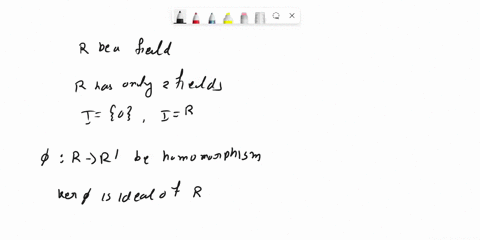 R be a field
R has only 2 fields
I = {0} , I = R
φ : R → R' be homomorphism
ker φ is ideal of R